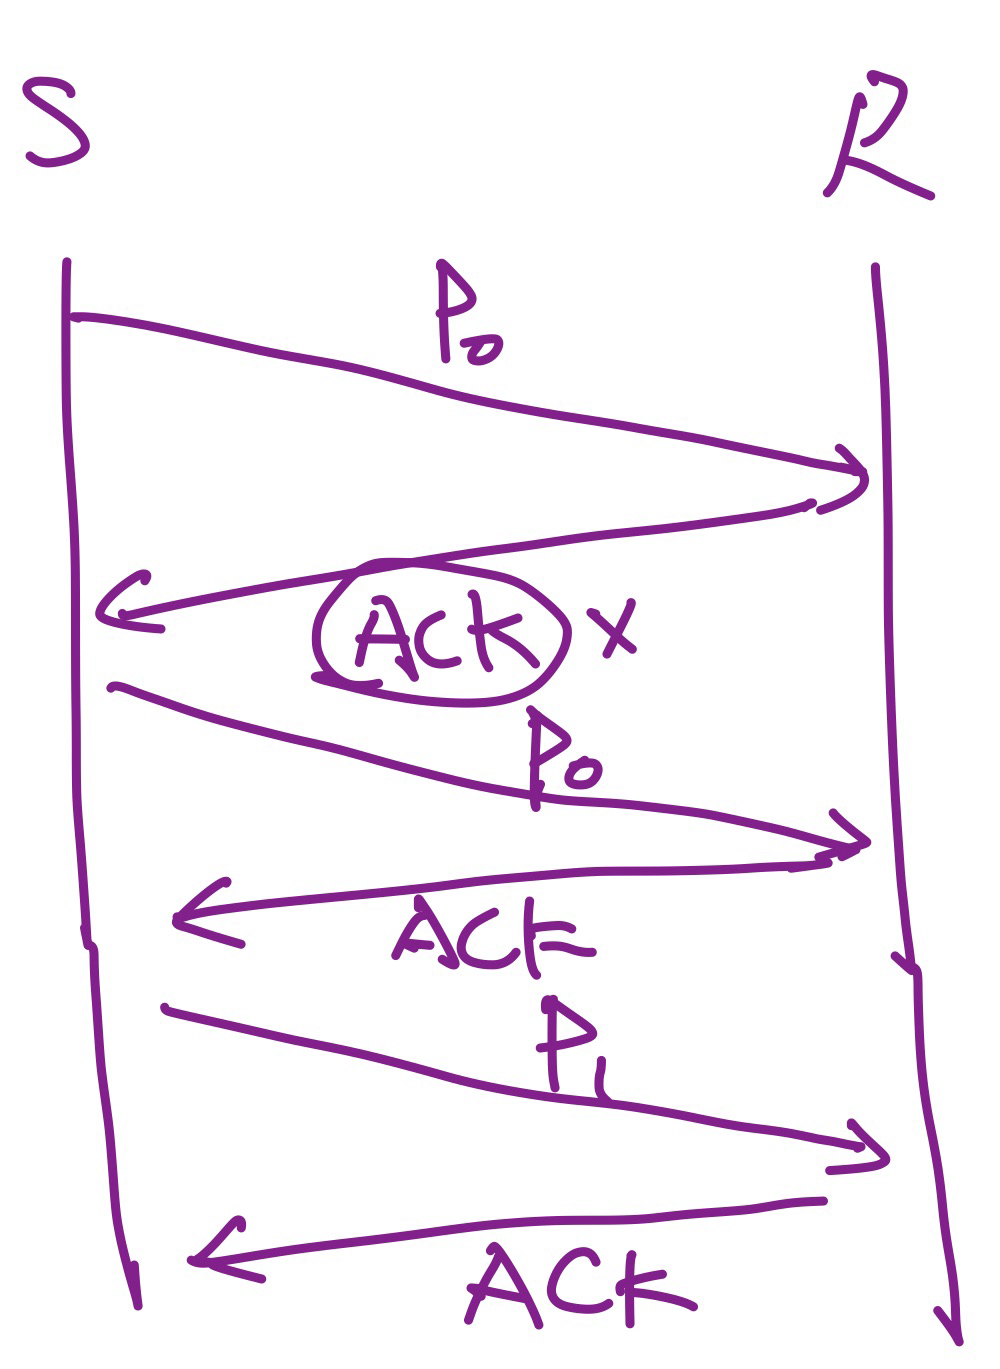 S R
P0
ACK X
P0
ACK
P1
ACK